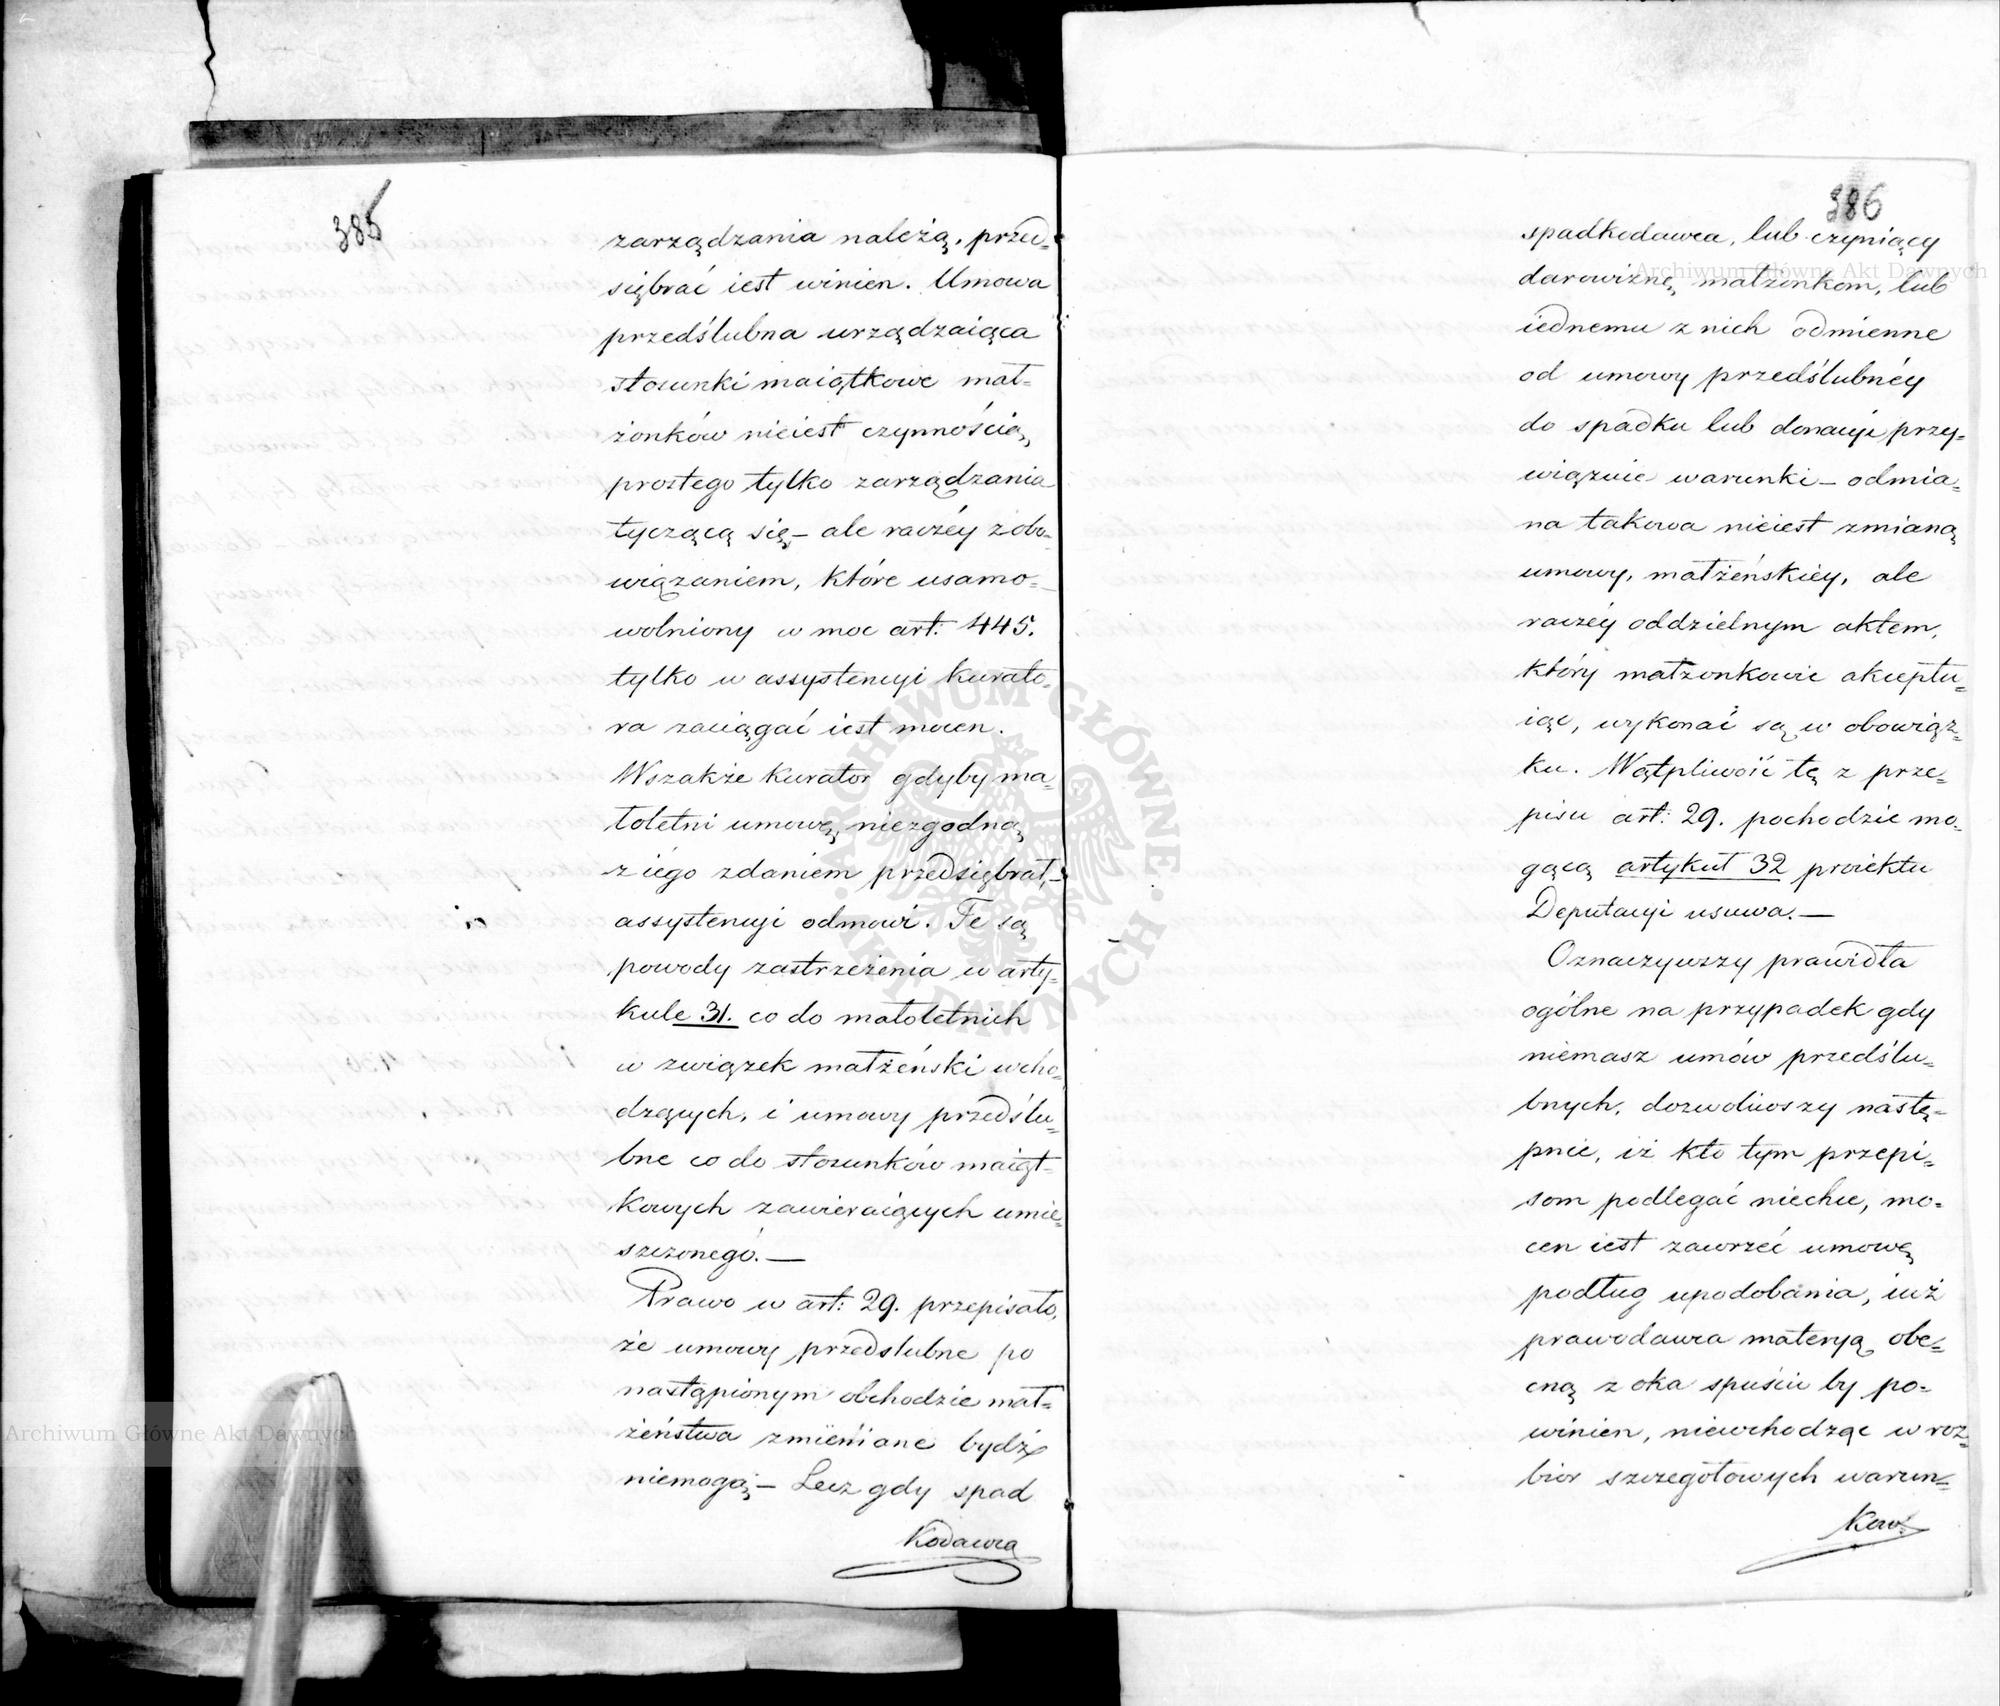 385
zarządzania należą, przed=
siębrać iest winien. Umowa
przedślubna urządzaiąca
stosunki maiątkowe mał=
żonków nieiest czynnością,
prostego tylko zarządzania
tyczącą się – ale raczéy zobo=
wiązaniem, które usamo=
wolniony w moc art: 445.
tylko w assystencyi kurato=
ra zaciągać iest mocen.
Wszakże kurator gdyby ma=
łoletni umowę, niezgodną
z iego zdaniem przedsiębrał, –
assystencyi odmówi. Te są
powody zastrzeżenia w arty=
kule 31. co do małoletnich
w związek małżeński wcho=
dzących, i umowy przedślu=
bne co do stosunków maiąt=
kowych zawieraiących umie=
szczonego. —
Prawo w art: 29. przepisało,
że umowy przedslubne po
nastąpionym obchodzie mał=
żeństwa zmieniane bydź
niemogą; – Lecz gdy spad
kodawca
386
spadkodawca, lub czyniący
darowiznę, małżonkom, lub
iednemu z nich odmienne
od umowy przedślubnéy
do spadku lub donacyi przy=
wiązuie warunki – odmia=
na takowa nieiest zmianą
umowy, małżeńskiéy, ale
raczéy oddzielnym aktem,
który małżonkowie akceptu=
iąc, wykonać są w obowiąz=
ku. Wątpliwość tę z prze=
pisu art: 29. pochodzić mo=
gącą artykuł 32 proiektu
Deputacyi usuwa. —
Oznaczywszy prawidła
ogólne na przypadek gdy
niemasz umów przedślu=
bnych, dozwoliwszy nastę=
pnie, iż kto tym przepi=
som podlegać niechce, mo=
cen iest zawrzeć umowę
podług upodobania, iuż
prawodawca materyą obe=
cną z oka spuścić by po=
winien, niewchodząc w roz=
biór szczegółowych warun=
ków
Archiwum Główne Akt Dawnych
Archiwum Główne Akt Dawnych
ARCHIWUM GŁÓWNE · AKT DAWNYCH ·